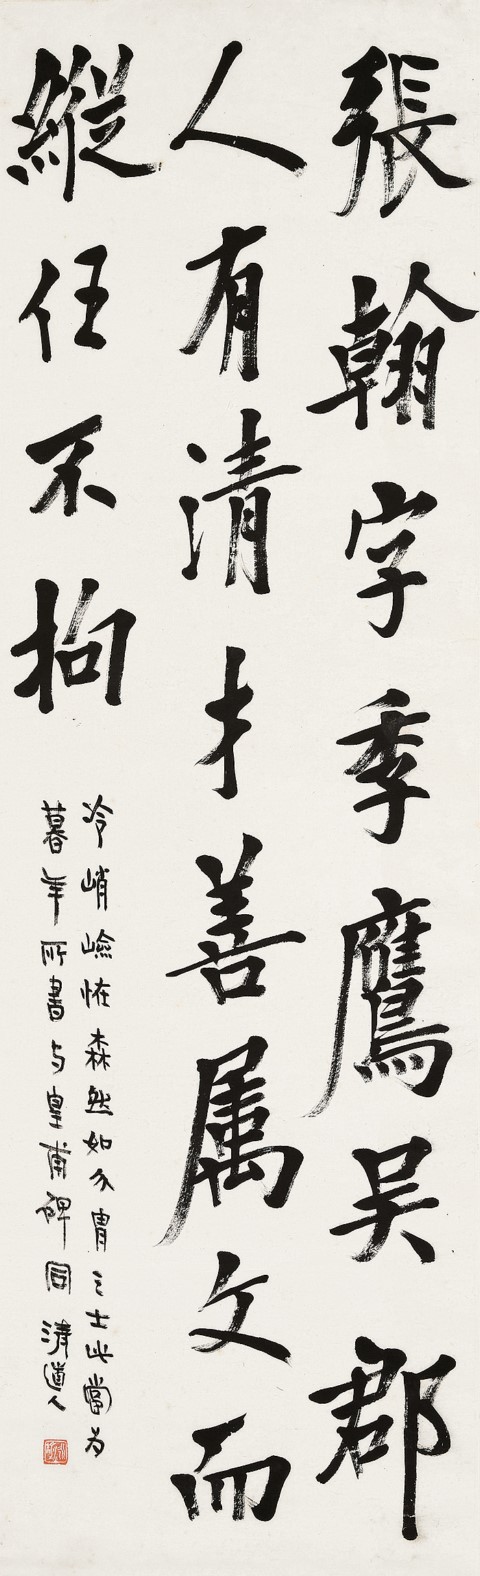 張翰字季鷹吴郡
人有清才善属文而
縱任不拘
冷峭嶮恠森然如介胄之士此當為
暮年所書与皇甫碑同 清道人